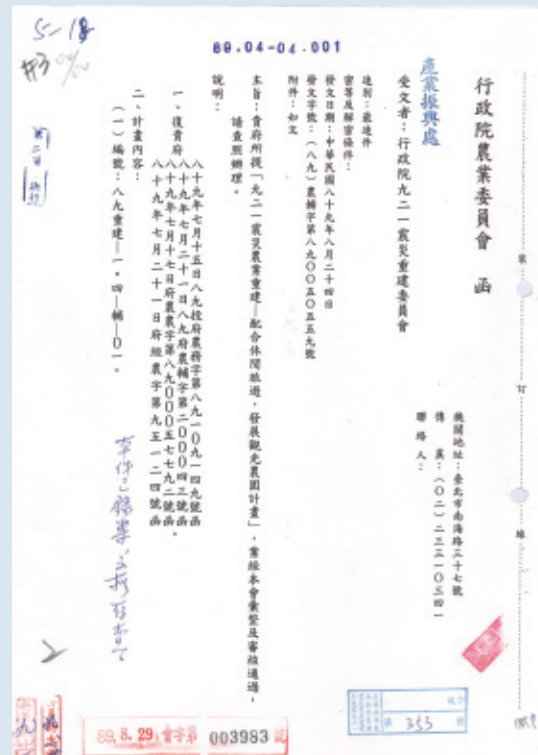 5-18
#3
89.04-04.001
行政院農業委員會 函
機關地址：臺北市南海路三十七號
傳 真：（〇二）二三三一〇三四一
聯 絡 人：
產業振興處
受文者：行政院九二一震災重建委員會
速別：最速件
密等及解密條件：
發文日期：中華民國八十九年八月二十四日
發文字號：（八九）農輔字第八九〇〇五〇五五九號
附件：如文
主旨：貴府所提「九二一震災農業重建—配合休閒旅遊，發展觀光農園計畫」，業經本會彙整及審核通過，
請查照辦理。
說明：
一、復貴府
八十九年七月十五日八九投府農務字第八九一〇九一四九號函
八十九年七月二十一日八九府農輔字第二〇〇〇四三號函
八十九年七月十七日府農農字第八九〇〇〇五七七九二號函
八十九年七月二十一日府經農字第九五一二四號函。
二、計畫內容：
（一）編號：八九重建—一．四—輔—〇一。
裝
訂
線
第 353 號
收字
89.8.29
003983